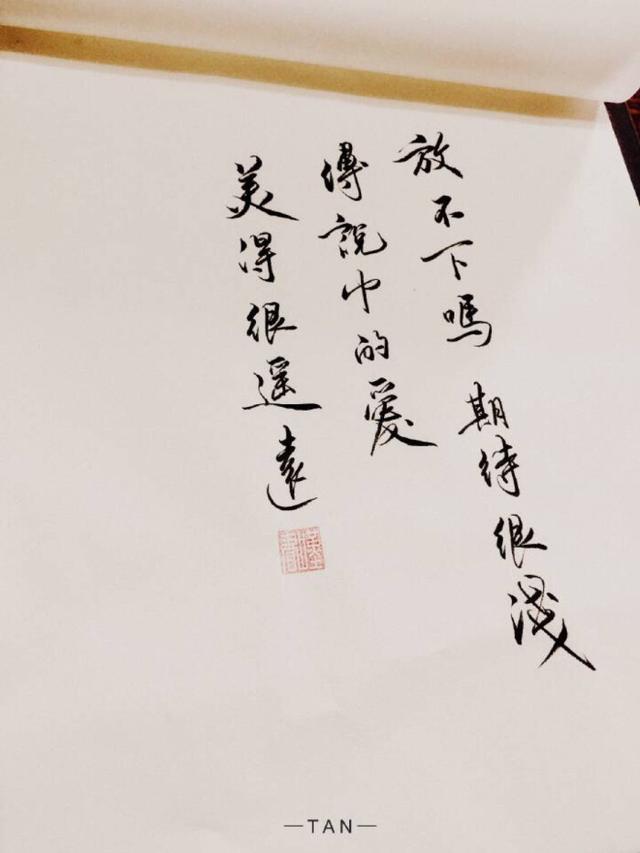 放不下嗎 期待很淺
傳說中的愛
美得很遥遠
—TAN—